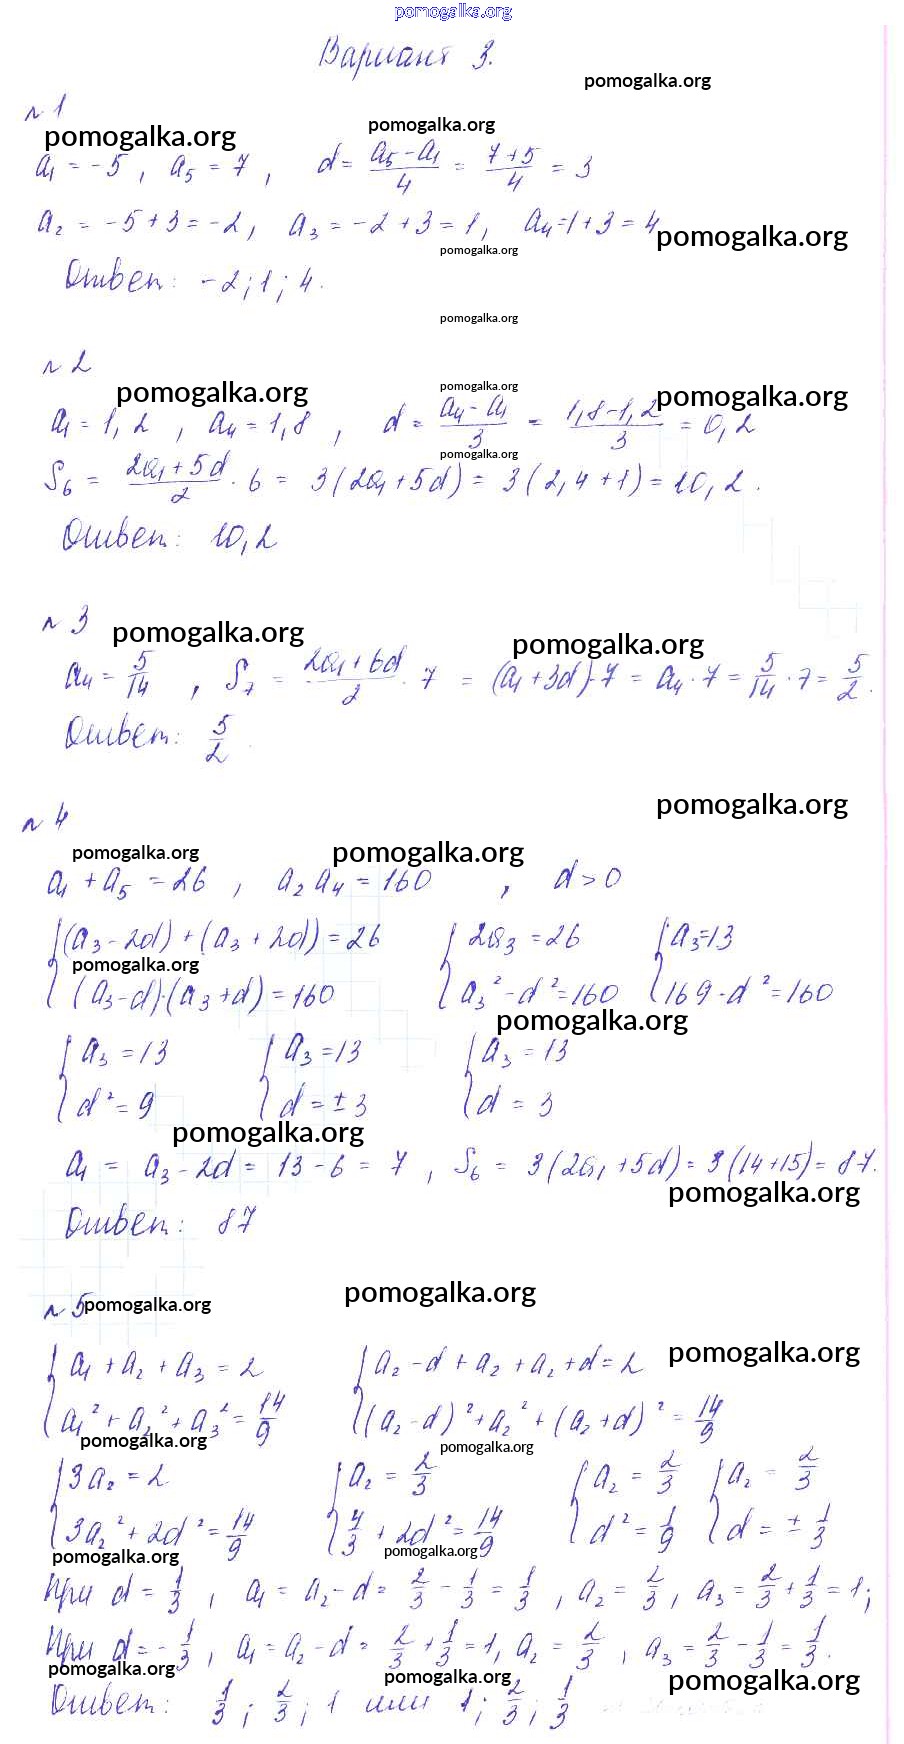 pomogalka.org
Вариант 3.
pomogalka.org
№1
pomogalka.org pomogalka.org
a₁ = -5, a₅ = 7, d = (a₅ - a₁)/4 = (7+5)/4 = 3
a₂ = -5+3 = -2, a₃ = -2+3 = 1, a₄ = 1+3 = 4
pomogalka.org
pomogalka.org
Ответ: -2; 1; 4.
pomogalka.org
№2
pomogalka.org pomogalka.org pomogalka.org
a₁ = 1,2, a₄ = 1,8, d = (a₄ - a₁)/3 = (1,8-1,2)/3 = 0,2
pomogalka.org
S₆ = (2a₁+5d)/2 · 6 = 3(2a₁+5d) = 3(2,4+1) = 10,2.
Ответ: 10,2
№3
pomogalka.org pomogalka.org
a₄ = 5/14, S₇ = (2a₁+6d)/2 · 7 = (a₁+3d)·7 = a₄·7 = 5/14 · 7 = 5/2.
Ответ: 5/2
pomogalka.org
№4
pomogalka.org pomogalka.org
a₁ + a₅ = 26, a₂a₄ = 160, d > 0
{(a₃-2d)+(a₃+2d)=26 {2a₃=26 {a₃=13
pomogalka.org
(a₃-d)·(a₃+d)=160 a₃²-d²=160 169-d²=160
pomogalka.org
{a₃=13 {a₃=13 {a₃=13
d²=9 d=±3 d=3
pomogalka.org
a₁ = a₃-2d = 13-6 = 7, S₆ = 3(2a₁+5d) = 3(14+15) = 87.
pomogalka.org
Ответ: 87
pomogalka.org
№5 pomogalka.org
pomogalka.org
{a₁+a₂+a₃=2 {a₂-d+a₂+a₂+d=2
a₁²+a₂²+a₃²=14/9 (a₂-d)²+a₂²+(a₂+d)²=14/9
pomogalka.org pomogalka.org
{3a₂=2 {a₂=2/3 {a₂=2/3 {a₂=2/3
3a₂²+2d²=14/9 4/3+2d²=14/9 d²=1/9 d=±1/3
pomogalka.org pomogalka.org
При d=1/3, a₁=a₂-d=2/3-1/3=1/3, a₂=2/3, a₃=2/3+1/3=1;
При d=-1/3, a₁=a₂-d=2/3+1/3=1, a₂=2/3, a₃=2/3-1/3=1/3.
pomogalka.org pomogalka.org pomogalka.org
Ответ: 1/3; 2/3; 1 или 1; 2/3; 1/3